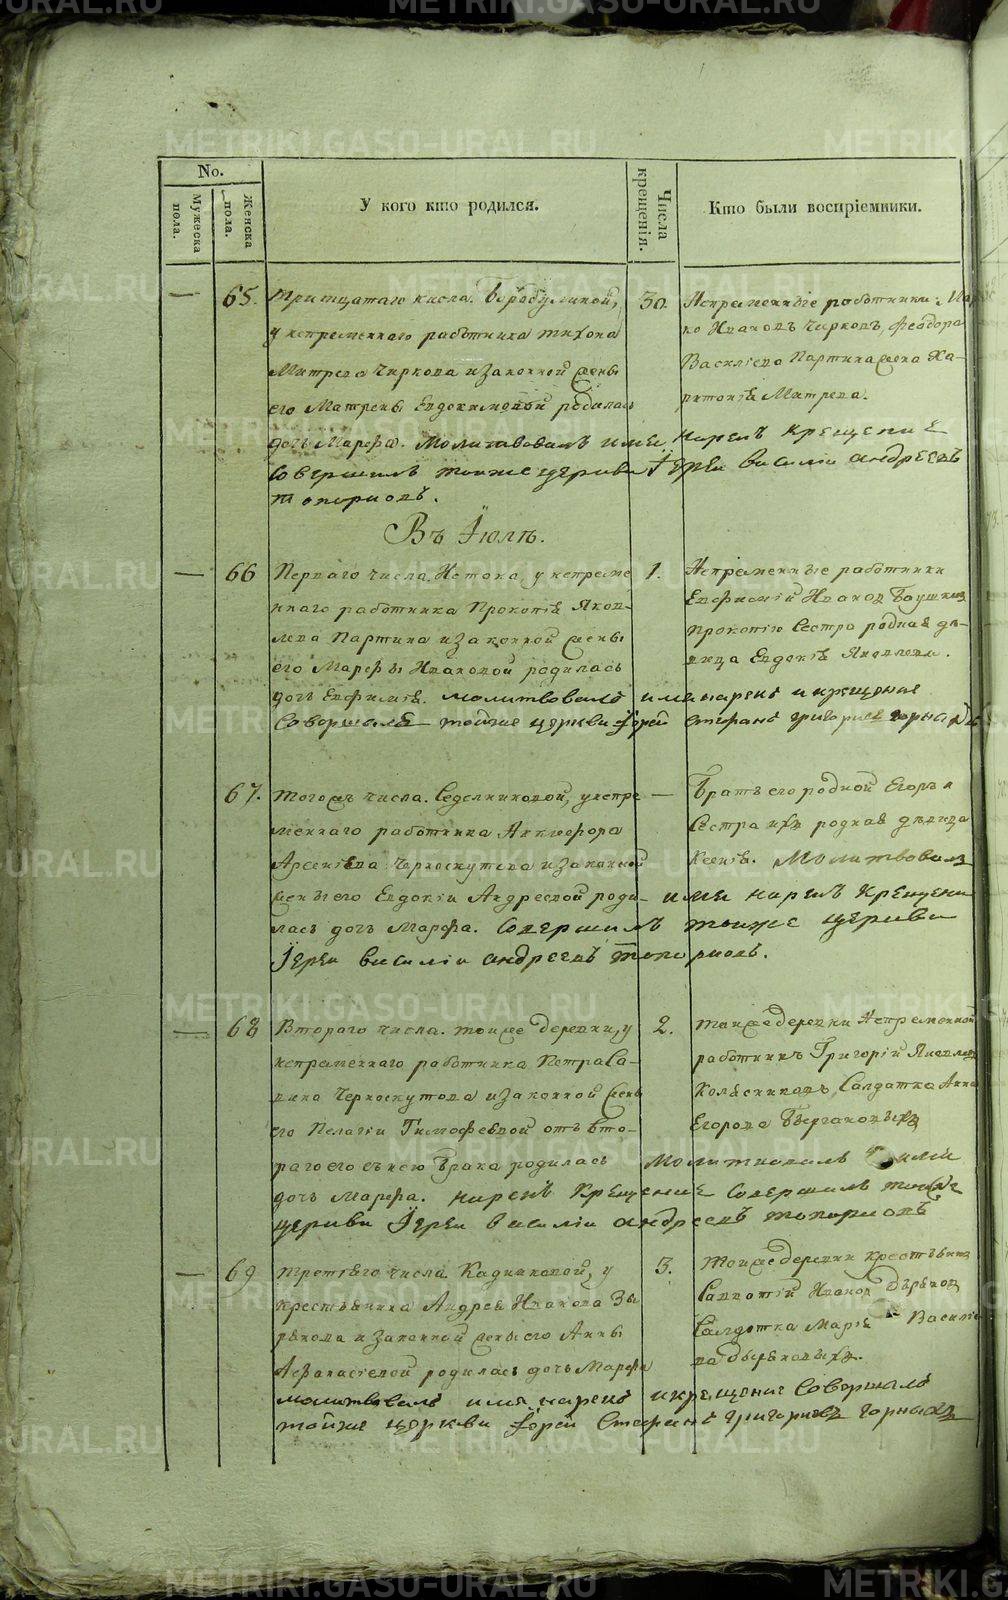 METRIKI.GASO-URAL.RU
No.
Мужеска пола.
Женска пола.
У кого кто родился.
Числа крещенія.
Кто были воспріемники.
65. Тритцатаго числа.
у непременнаго работника Тихона
Митрева Чиркова и законной жены
его Матрены Евдокимовой родилась
дочь Марфа. Молитвовалъ имя нарекъ крещение
совершилъ тоижe церкви Іереи василіи андреевъ
топорковъ.
30. Непременные работники
Ивановъ Чирковъ, Феодора
Василіева Партина жена Ха-
ритоніѣ Митрева.
Въ Іюлѣ.
66 Перваго числа. Истока, у непреме
ннаго работника Прокопіѣ Яков-
лева Партина и законной жены
его Марфы Ивановой родилась
дочь Евфиміѣ. молитвовалъ имя нарекъ и крещение
Совершалъ тойже церкви Іерей Стефанъ григориевъ
1. Непременные работники
Евфимій Иванов
Прокопію Сестра родная дѣ-
вица Евдокіѣ Яковлева.
67. Тогожъ числа. Седелниковой, у непре
меннаго работника Никифора
Арсеніева Черноскутова и законной
жены его Евдокіи Андреевой роди-
лась дочь Марфа. Совершилъ тоиже церкви
Іереи василіи андреевъ топорковъ.
— Братъ его родной Егоръ и
Сестра ихъ родная дѣвица
Ксеніѣ. Молитвовалъ
имя нарекъ Крещение
68 Втораго числа. тоиже деревни, у
непременнаго работника Петра Са-
вина Черноскутова и законной жены
его Пелагіи Тимофеевой отъ вто-
раго его съ нею брака родилась
дочь Марфа. нарекъ Крещение Совершилъ тоиже
церкви Іереи василіи андреевъ топорковъ
2. Тоиже деревни Непременной
работникъ Григорій Яковлевъ
Колѣсниковъ, Салдатка Анна
Егорова
Молитвовалъ имя
69. Третіего числа. Кадниковой, у
крестьянина Андрея Иванова Зы
рѣнова и законной жены его Анны
Афанасіевой родилась дочь Марфа
молитвовалъ имя нарекъ и крещение Совершалъ
тойже церкви Іерей Стефанъ григориевъ горныхъ
3. Тоиже деревни крестьянинъ
Савватій Иванов
Салдатка Маріѣ Василіе
ва